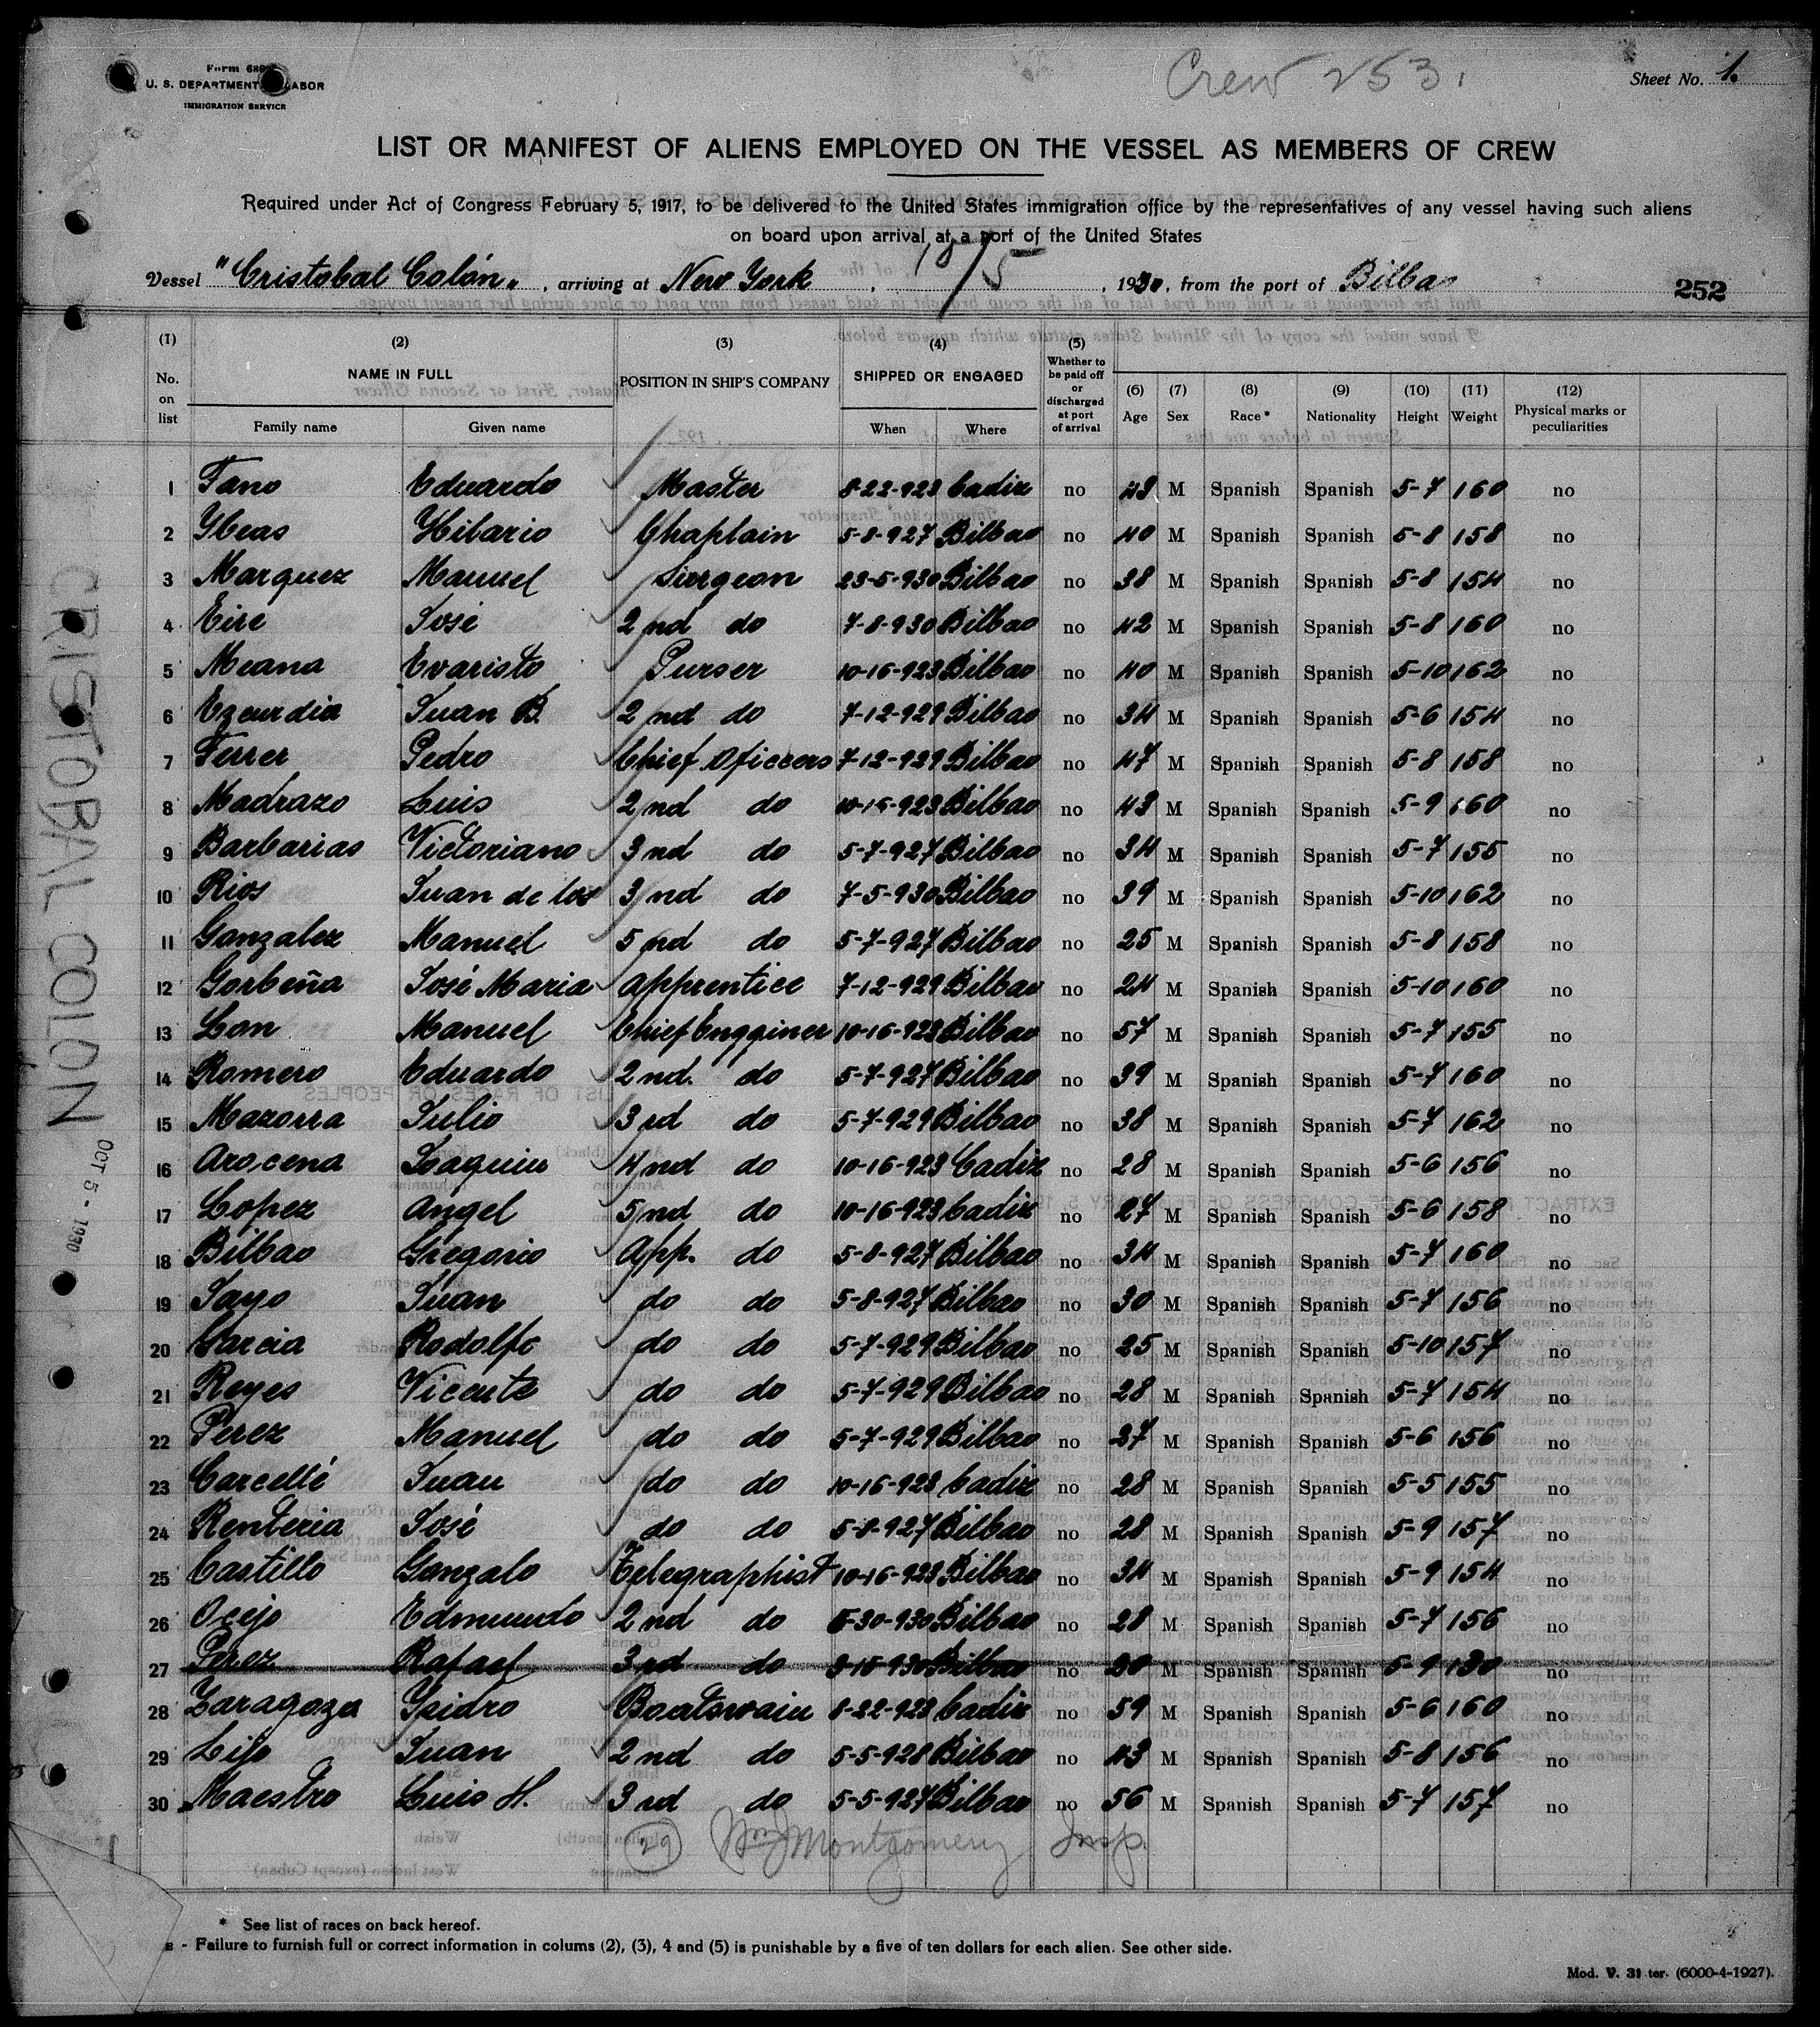 Form 680
U. S. DEPARTMENT LABOR
IMMIGRATION SERVICE
Crew 253.
Sheet No. 1.
LIST OR MANIFEST OF ALIENS EMPLOYED ON THE VESSEL AS MEMBERS OF CREW
Required under Act of Congress February 5, 1917, to be delivered to the United States immigration office by the representatives of any vessel having such aliens
on board upon arrival at a port of the United States
Vessel "Cristobal Colón", arriving at New York, 10/5, 1930, from the port of Bilbao 252
(1) No. on list (2) NAME IN FULL Family name Given name (3) POSITION IN SHIP'S COMPANY (4) SHIPPED OR ENGAGED When Where (5) Whether to be paid off or discharged at port of arrival (6) Age (7) Sex (8) Race* (9) Nationality (10) Height (11) Weight (12) Physical marks or peculiarities
1 Fano Eduardo Master 8-22-923 Cadiz no 43 M Spanish Spanish 5-7 160 no
2 Ybeas Hilario Chaplain 5-8-927 Bilbao no 40 M Spanish Spanish 5-8 158 no
3 Marquez Manuel Surgeon 23-5-930 Bilbao no 38 M Spanish Spanish 5-8 154 no
4 Eire José 2 nd do 7-8-930 Bilbao no 42 M Spanish Spanish 5-8 160 no
5 Meana Evaristo Purser 10-16-923 Bilbao no 40 M Spanish Spanish 5-10 162 no
6 Ezcurdia Juan B. 2 nd do 7-12-929 Bilbao no 34 M Spanish Spanish 5-6 154 no
7 Ferrer Pedro Chief Oficcers 7-12-929 Bilbao no 47 M Spanish Spanish 5-8 158 no
8 Madrazo Luis 2 nd do 10-16-923 Bilbao no 43 M Spanish Spanish 5-9 160 no
9 Barbarias Victoriano 3 nd do 5-7-927 Bilbao no 34 M Spanish Spanish 5-7 155 no
10 Rios Juan de los 3 nd do 7-5-930 Bilbao no 39 M Spanish Spanish 5-10 162 no
11 Gonzalez Manuel 5 nd do 5-7-927 Bilbao no 25 M Spanish Spanish 5-8 158 no
12 Gorbeña José Maria apprentice 7-12-929 Bilbao no 24 M Spanish Spanish 5-10 160 no
13 Lon Manuel Chief Engginer 10-16-923 Bilbao no 57 M Spanish Spanish 5-7 155 no
14 Romero Eduardo 2 nd. do 5-7-927 Bilbao no 39 M Spanish Spanish 5-7 160 no
15 Mazorra Julio 3 rd do 5-7-929 Bilbao no 38 M Spanish Spanish 5-7 162 no
16 Arocena Joaquin 4 nd do 10-16-923 Cadiz no 28 M Spanish Spanish 5-6 156 no
17 Lopez Angel 5 nd do 10-16-923 Cadiz no 27 M Spanish Spanish 5-6 158 no
18 Bilbao Gregorio App. do 5-8-927 Bilbao no 34 M Spanish Spanish 5-7 160 no
19 Sayo Juan do do 5-8-927 Bilbao no 30 M Spanish Spanish 5-7 156 no
20 Garcia Rodolfo do do 5-7-929 Bilbao no 25 M Spanish Spanish 5-10 157 no
21 Reyes Vicente do do 5-7-929 Bilbao no 28 M Spanish Spanish 5-7 154 no
22 Perez Manuel do do 5-7-929 Bilbao no 27 M Spanish Spanish 5-6 156 no
23 Carcellé Juan do do 10-16-923 Cadiz no 28 M Spanish Spanish 5-5 155 no
24 Renteria José do do 5-8-927 Bilbao no 28 M Spanish Spanish 5-9 157 no
25 Castillo Gonzalo Telegraphist 10-16-923 Bilbao no 34 M Spanish Spanish 5-9 154 no
26 Ocejo Edmundo 2 nd do 6-30-930 Bilbao no 28 M Spanish Spanish 5-7 156 no
27 Perez Rafael 3 rd do 8-15-930 Bilbao no 30 M Spanish Spanish 5-9 130 no
28 Zaragoza Ysidro Boatswain 8-22-923 Cadiz no 59 M Spanish Spanish 5-6 160 no
29 Lijo Juan 2 nd do 5-5-928 Bilbao no 43 M Spanish Spanish 5-8 156 no
30 Maestro Luis H. 3 rd do 5-5-927 Bilbao no 56 M Spanish Spanish 5-7 157 no
29 Wm J Montgomery Insp.
CRISTOBAL COLON
OCT 5 - 1930
* See list of races on back hereof.
- Failure to furnish full or correct information in colums (2), (3), 4 and (5) is punishable by a five of ten dollars for each alien. See other side.
Mod. V. 31 ter. (6000-4-1927).